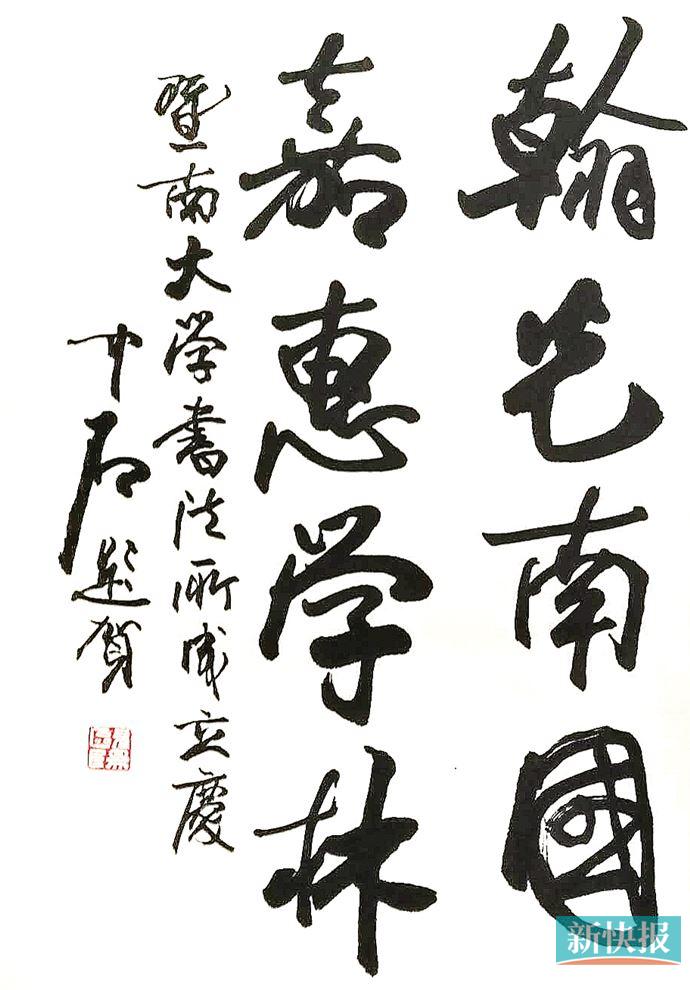 翰光南國
嘉惠学林
暨南大学書法所成立慶
中石題賀
新快报